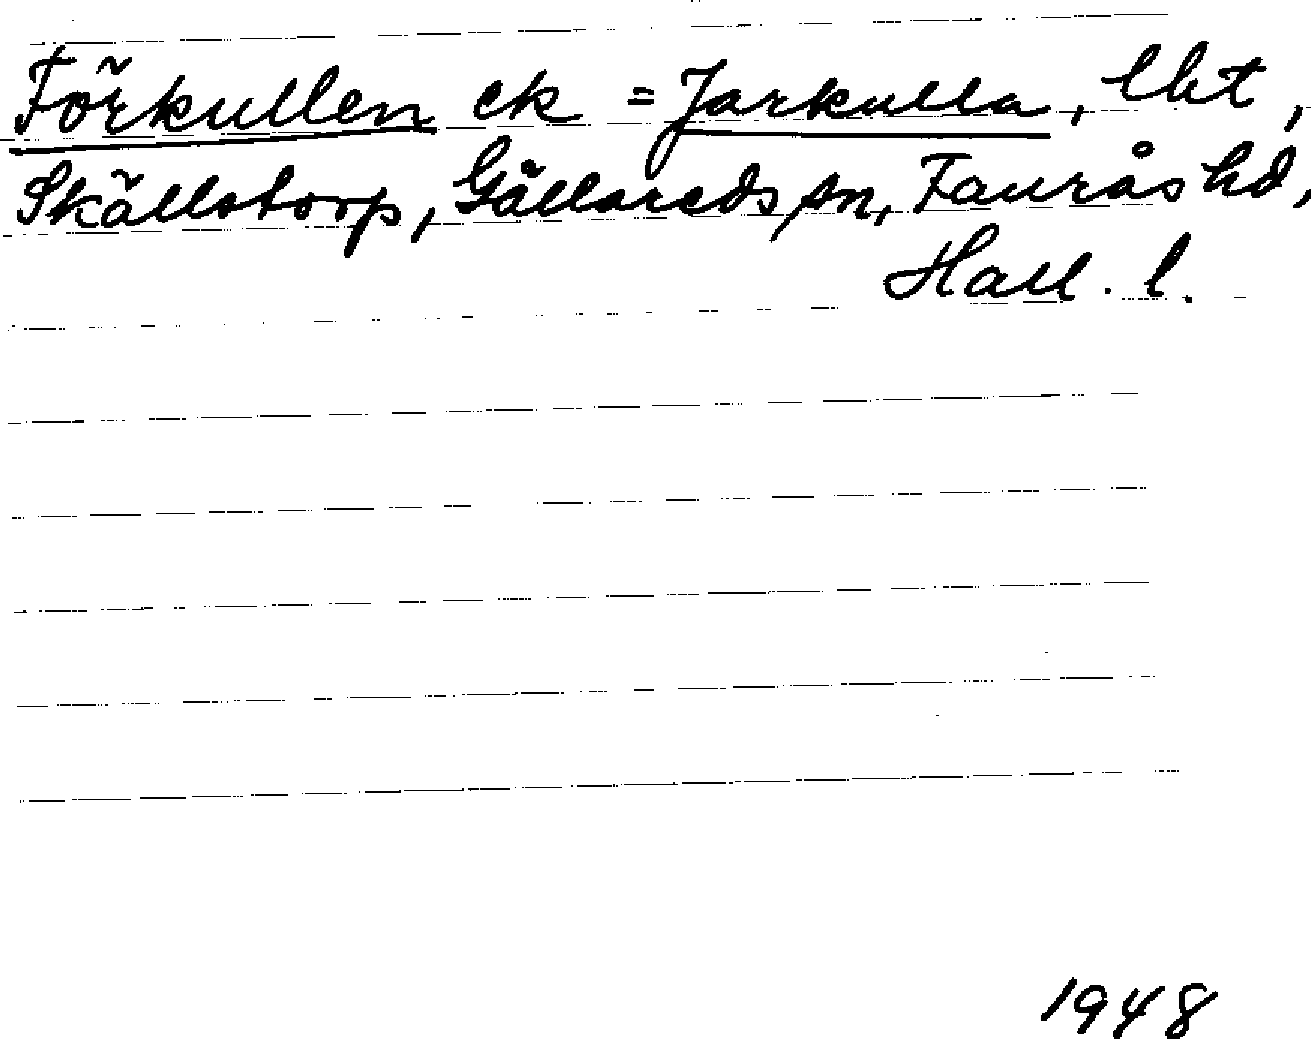 Förkullen ek = Jarkulla, lht,
Skällstorp, Gällareds sn, Faurås hd,
Hall. l.
1948